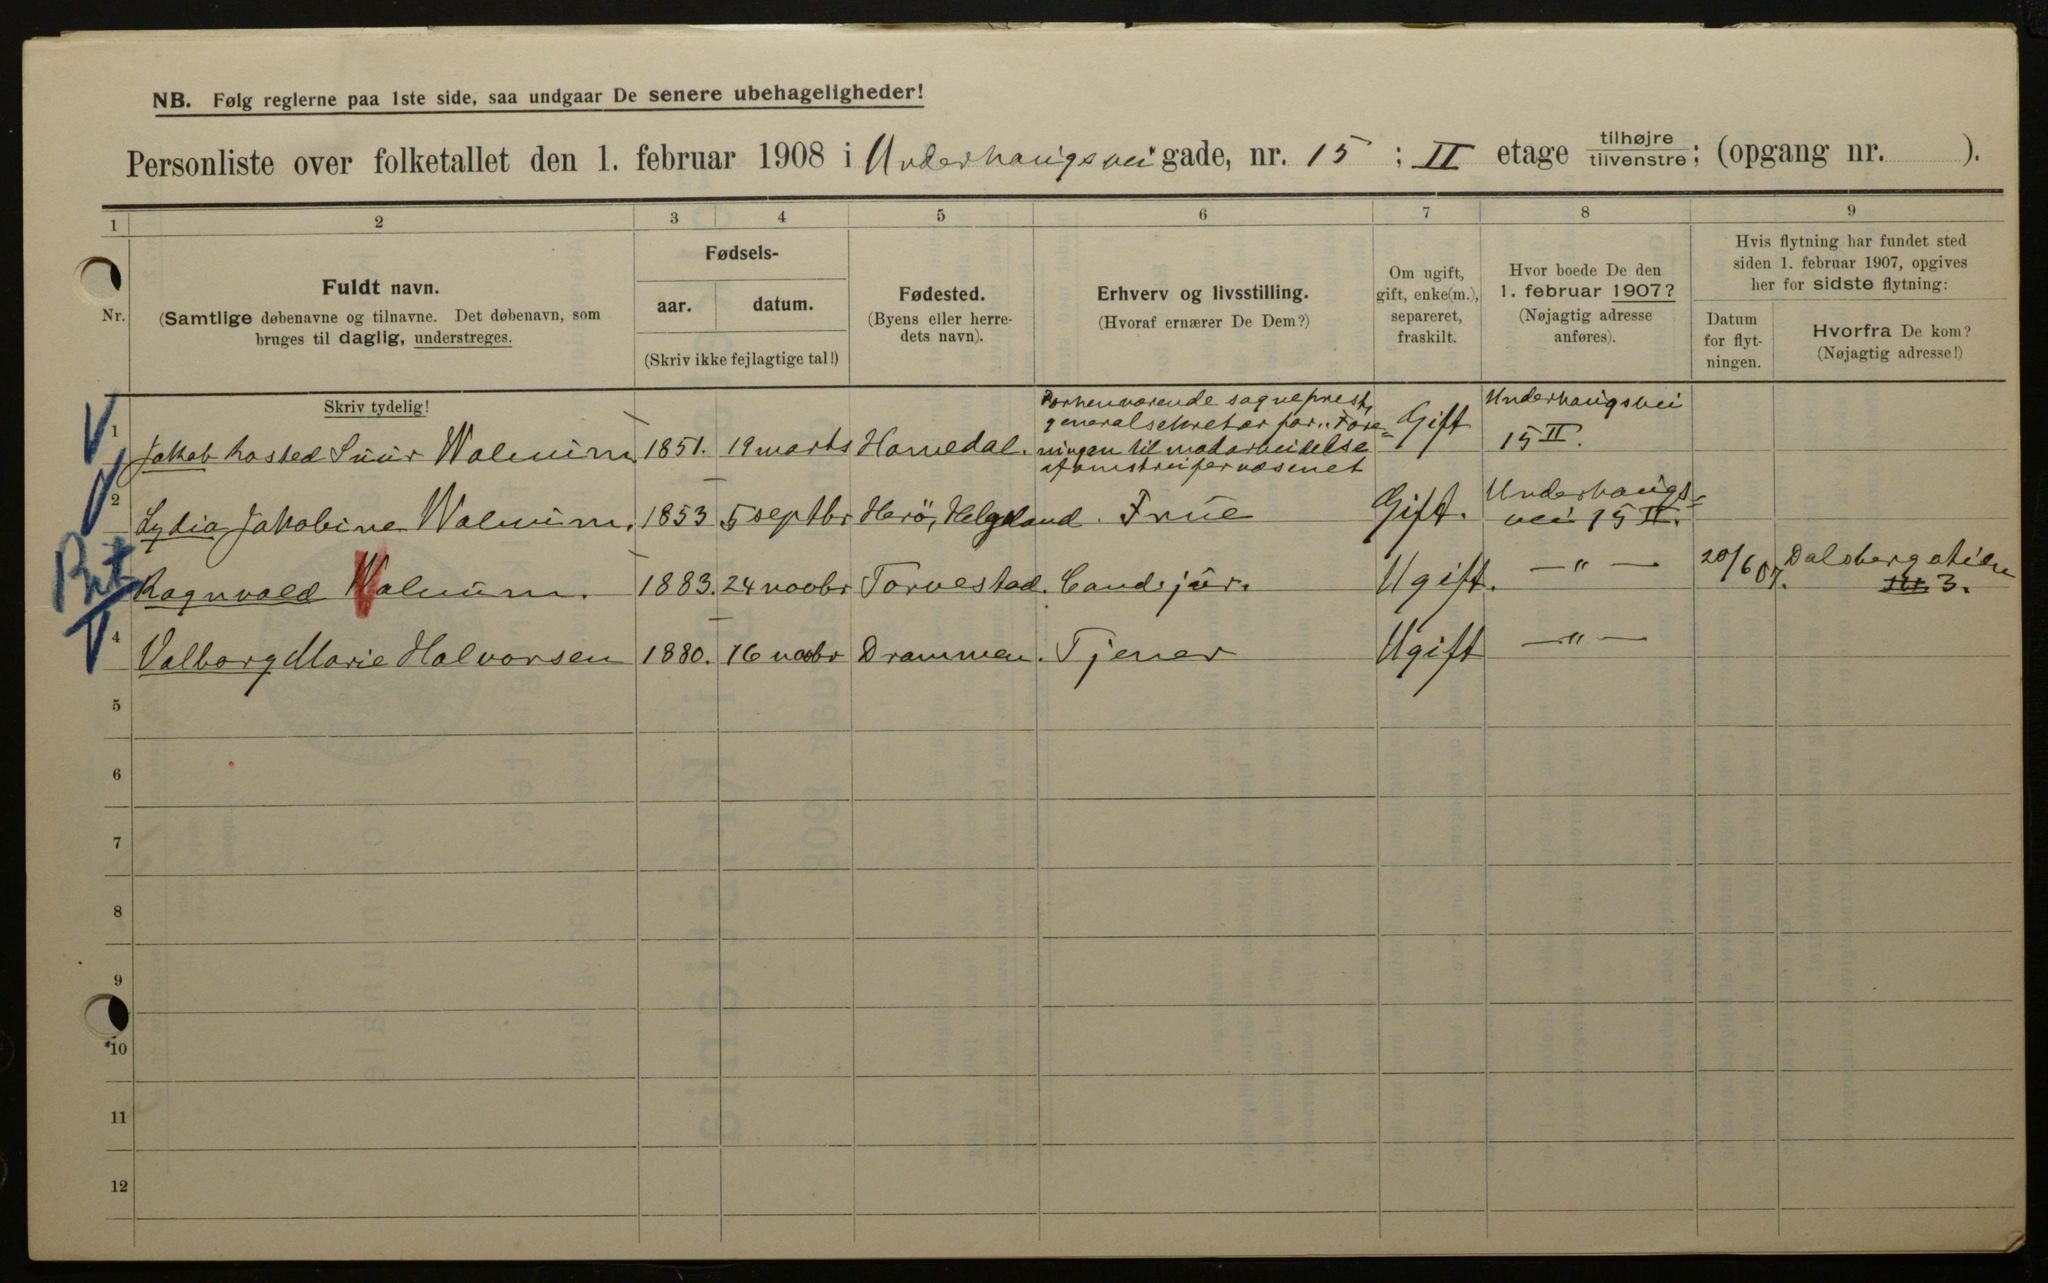 NB. Følg reglerne paa 1ste side, saa undgaar De senere ubehageligheder!
Personliste over folketallet den 1. februar 1908 i Underhaugsvei gade, nr. 15 ; II etage tilhøjre/tilvenstre; (opgang nr. ).
1 2 3 4 5 6 7 8 9
Nr.
Fuldt navn.
(Samtlige døbenavne og tilnavne. Det døbenavn, som
bruges til daglig, understreges.
Skriv tydelig!
Fødsels-
aar. datum.
(Skriv ikke fejlagtige tal!)
Fødested.
(Byens eller herre-
dets navn).
Erhverv og livsstilling.
(Hvoraf ernærer De Dem?)
Om ugift,
gift, enke(m.),
separeret,
fraskilt.
Hvor boede De den
1. februar 1907?
(Nøjagtig adresse
anføres).
Hvis flytning har fundet sted
siden 1. februar 1907, opgives
her for sidste flytning:
Datum
for flyt-
ningen.
Hvorfra De kom?
(Nøjagtig adresse!)
1
Jakob Rosted Suur Walnum 1851. 19 marts Homedal.
Forhenværende sogneprest,
generalsekretær for "Fore=
ningen til modarbeidelse
af omstreifervæsenet
Gift
Underhaugsvei
15 II.
2
Lydia Jakobine Walnum. 1853 5 septbr Herø, Helgeland. Frue Gift.
Underhaugs=
vei 15 II.
Ragnvald Walnum. 1883. 24 novbr Torvestad. Cand. jur. Ugift. — " — 20/6 07.
Dalsbergstien
3.
4
Valborg Marie Halvorsen 1880. 16 novbr Drammen. Tjener Ugift — " —
5
6
7
8
9
10
11
12